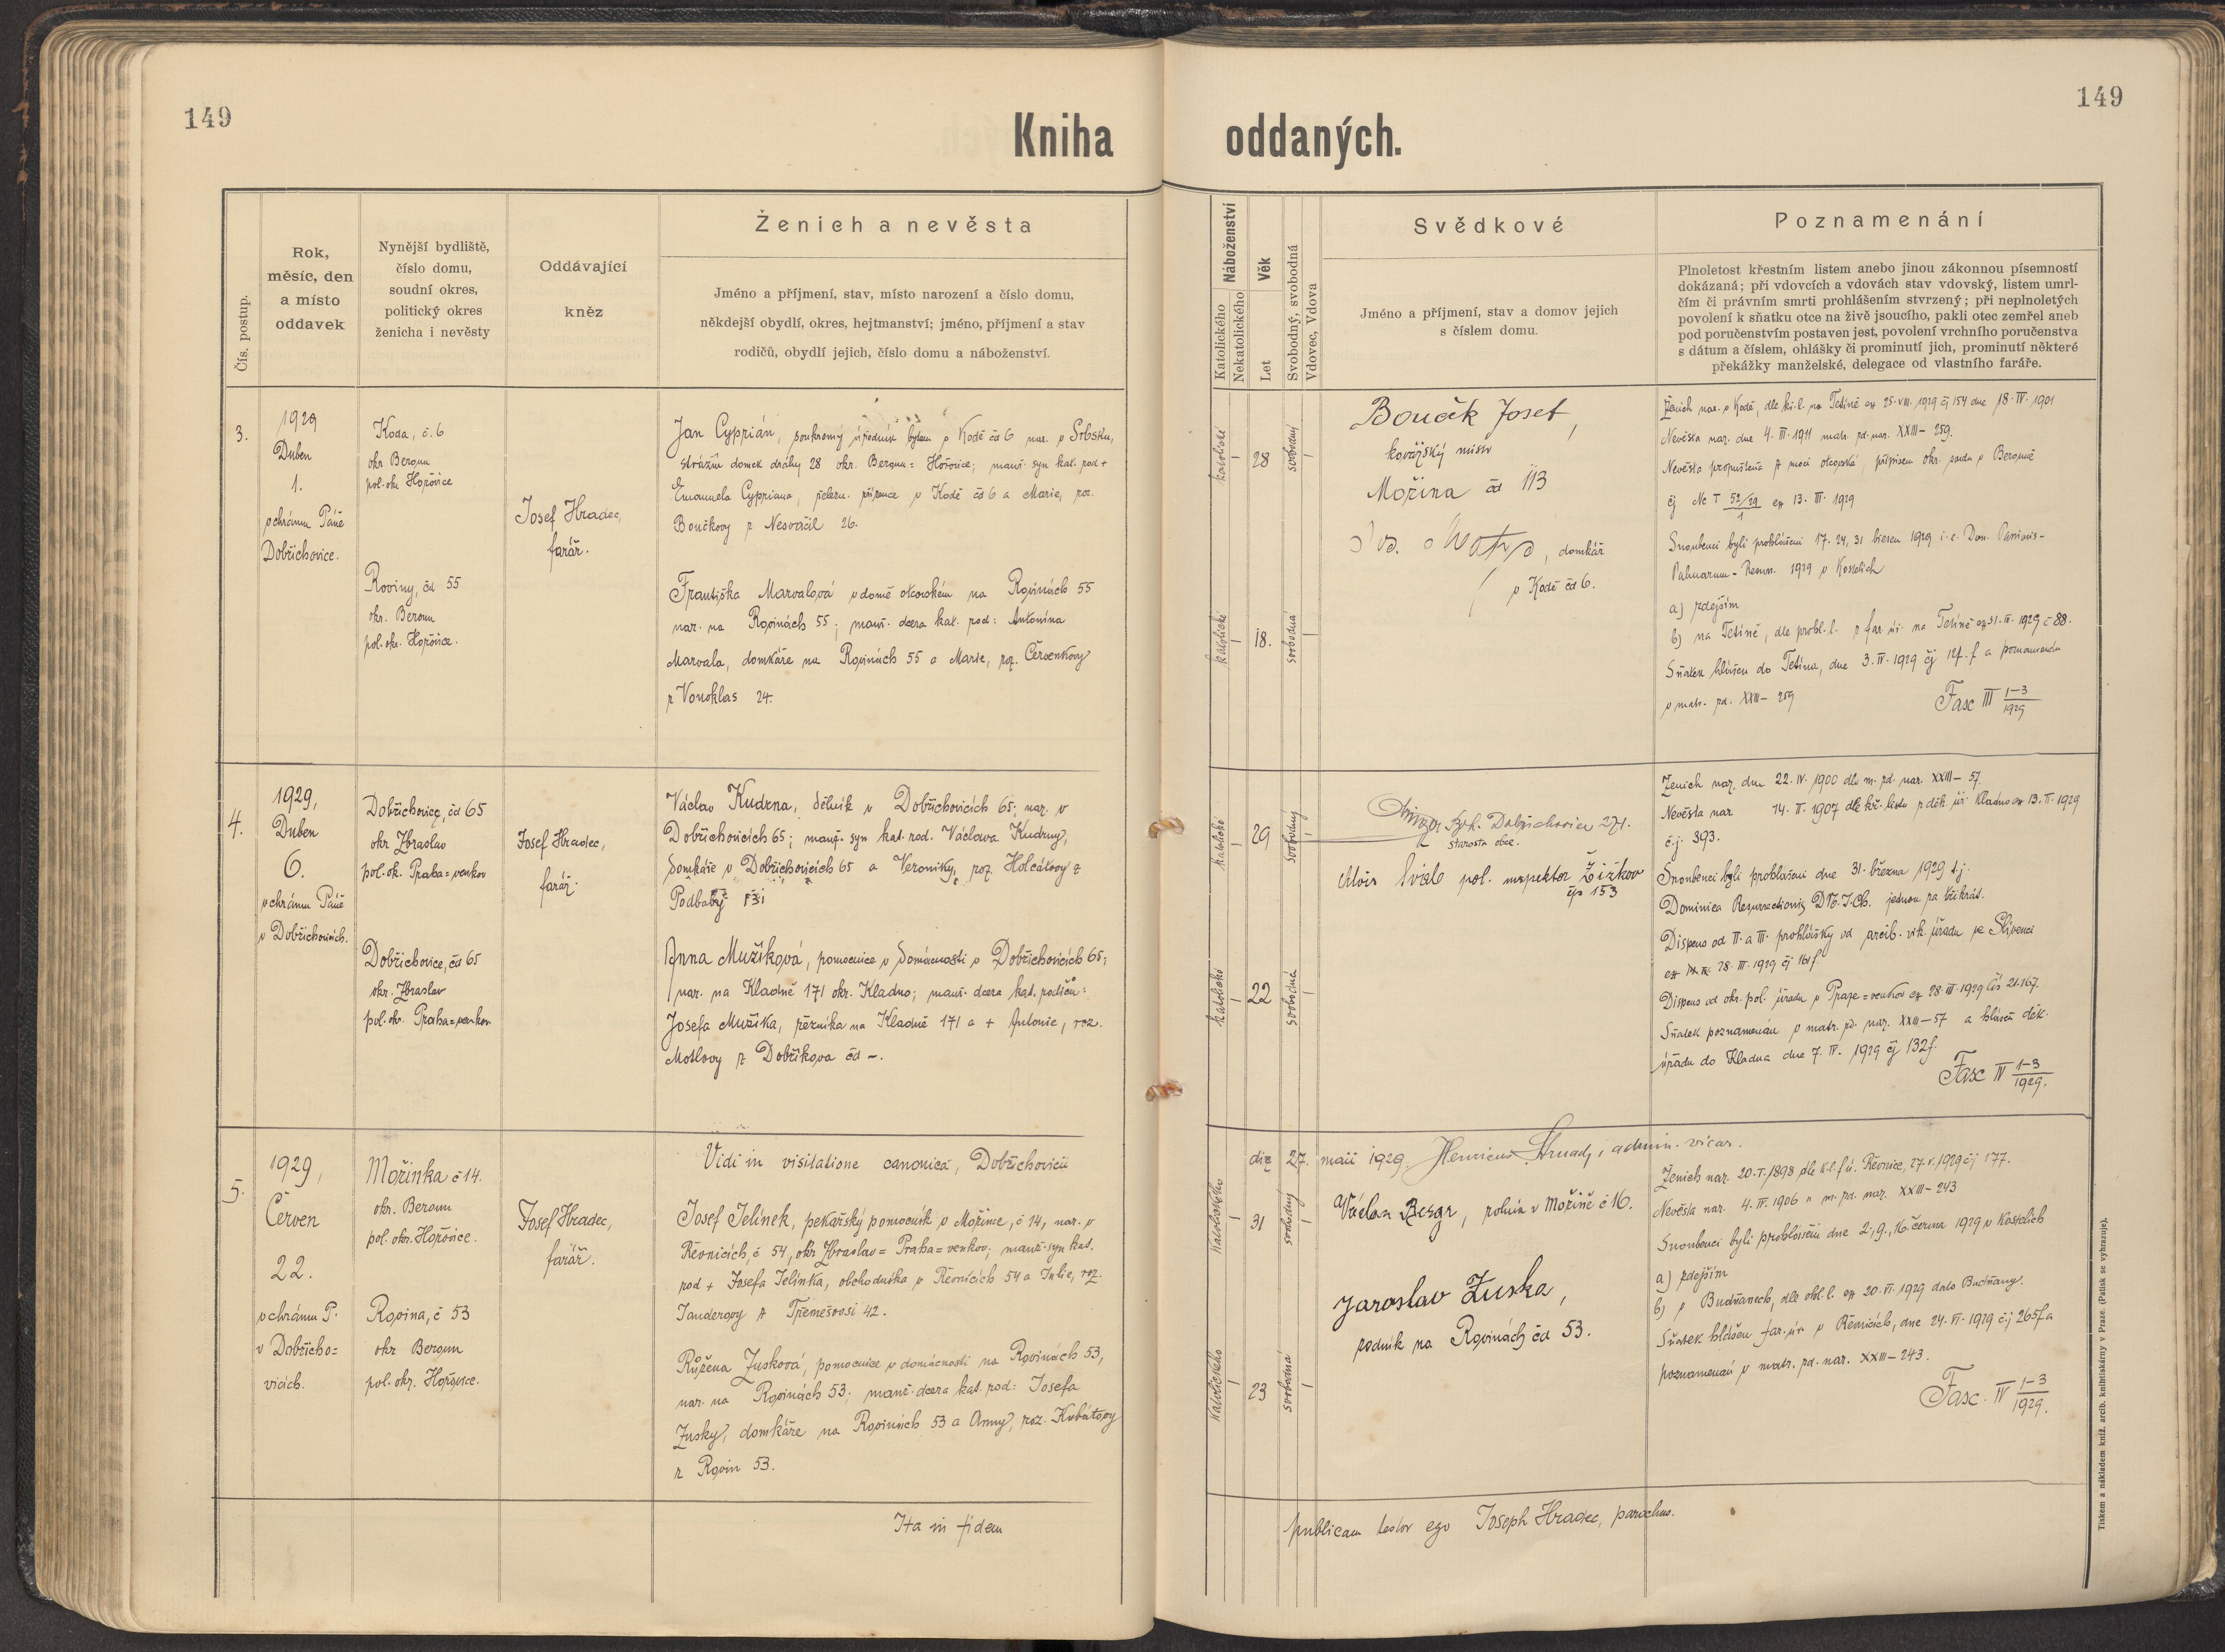 149
149
Kniha oddaných.
Čís. postup.
Rok,
měsíc, den
a místo
oddavek
Nynější bydliště,
číslo domu,
soudní okres,
politický okres
ženicha i nevěsty
Oddávající
kněz
Ženich a nevěsta
Jméno a příjmení, stav, místo narození a číslo domu,
někdejší obydlí, okres, hejtmanství; jméno, příjmení a stav
rodičů, obydlí jejich, číslo domu a náboženství.
Náboženství
Katolického
Nekatolického
Věk
Let
Svobodný, svobodná
Vdovec, Vdova
Svědkové
Jméno a příjmení, stav a domov jejich
s číslem domu.
Poznamenání
Plnoletost křestním listem anebo jinou zákonnou písemností
dokázaná; při vdovcích a vdovách stav vdovský, listem umrl-
čím či právním smrti prohlášením stvrzený; při neplnoletých
povolení k sňatku otce na živě jsoucího, pakli otec zemřel aneb
pod poručenstvím postaven jest, povolení vrchního poručenstva
s dátum a číslem, ohlášky či prominutí jich, prominutí některé
překážky manželské, delegace od vlastního faráře.
3.
1929
Duben
1.
v chrámu Páně
Dobřichovice.
Koda, č. 6
okr Beroun
pol. okr Hořovice
Roviny, čd 55
okr. Beroun
pol. okr. Hořovice.
Josef Hradec,
farář.
Jan Cyprián, soukromý úředník bytem v Kodě čd 6 nar. v Srbsku,
strážní domek dráhy 28 okr. Beroun = Hořovice; manž. syn kat. rod +
Emanuela Cypriana, železn. zřízence v Kodě čd 6 a Marie, roz.
Boučkovy z Nesvačil 26.
Františka Marvalová v domě otcovském na Rovinách 55
nar. na Rovinách 55; manž. dcera kat. rod: Antonína
Marvala, domkáře na Rovinách 55 a Marie, roz. Červenkovy
z Vonoklas 24.
katolické
28
svobodný
katolické
18.
svobodná
Bouček Josef,
kovářský mistr
Mořina čd 113
domkář
v Kodě čd 6.
Ženich nar. v Kodě, dle kř. l. na Tetíně 1929 čj 154 dne 18. IV. 1901
Nevěsta nar. dne 4. III. 1911 matr. zd. nar. XXIII - 259.
Nevěsta propuštěna z moci otcovské, přípisem okr. soudu v Berouně
čj Nc I 52/29 1 ex 13. III. 1929
Snoubenci byli prohlášeni 17. 24, 31 března 1929 i. e. Dom. Passionis -
Palmarum - Resurr. 1929 v Kostelích
a) zdejším
b) na Tetíně, dle prohl. l. z far. úř. na Tetíně ex 31. III. 1929 č 88.
Sňatek hlášen do Tetína, dne 3. IV. 1929 čj 127. f a poznamenán
v matr. zd. XXIII - 259
Fasc III 1-3/1929
4.
1929,
Duben
6.
v chrámu Páně
v Dobřichovicích.
Dobřichovice, čd 65
okr Zbraslav
pol. ok. Praha = venkov
Dobřichovice, čd 65
okr. Zbraslav
pol. okr. Praha = venkov
Josef Hradec,
farář.
Václav Kudrna, dělník v Dobřichovicích 65; nar. v
Dobřichovicích 65; manž. syn kat. rod. Václava Kudrny,
domkáře v Dobřichovicích 65 a Veroniky, roz Holcátovy z
Podbaby
Anna Mužíková, pomocnice v domácnosti v Dobřichovicích 65;
nar. na Kladně 171 okr. Kladno; manž. dcera kat. rodičů:
Josefa Mužíka, řezníka na Kladně 171 a + Antonie, roz.
Motlovy z Dobříkova čd -.
katolické
29
svobodný
katolické
22
svobodná
Dobřichovice 271.
starosta obce.
Alois pol. inspektor Žižkov
čp 153
Ženich nar. dne 22. IV. 1900 dle m. zd. nar. XXIII - 57.
Nevěsta nar. 14. II. 1907 dle kř. listu z děk. úř. Kladno ex 13. II. 1929
č.j. 393.
Snoubenci byli prohlášeni dne 31. března 1929 t.j.
Dominica Resurrectionis DN. J. Ch. jednou za třikrát.
Dispens od II. a III. prohlášky od arcib. vik. úřadu ze Slivenci
ex 28. III. 1929 čj 161 f.
Dispens od okr. pol. úřadu v Praze = venkov ex 28. III. 1929 čís 21.167.
Sňatek poznamenán v matr. zd. nar. XXIII - 57 a hlášen děk.
úřadu do Kladna dne 7. IV. 1929 čj 132 f.
Fasc IV 1-3/1929.
Vidi in visitatione canonica, Dobřichovicii
die 27. maii 1929. Henricus Strnad, admin. vicar.
5.
1929,
Červen
22.
v chrámu P.
v Dobřicho=
vicích.
Mořinka č 14.
okr. Beroun
pol. okr. Hořovice.
Rovina, č 53
okr Beroun
pol. okr. Hořovice.
Josef Hradec,
farář.
Josef Jelínek, pekařský pomocník v Mořince, č 14, nar. v
Řevnicích, č 54, okr Zbraslav = Praha = venkov; manž. syn kat.
rod + Josefa Jelínka, obchodníka v Řevnicích 54 a Julie, roz.
Janderovy z Třemešovsi 42.
Růžena Zusková, pomocnice v domácnosti na Rovinách 53,
nar. na Rovinách 53; manž. dcera kat. rod: Josefa
Zusky, domkáře na Rovinách 53 a Anny, roz. Kubátovy
z Rovin 53.
katolického
31
svobodný
katolického
23
svobodná
Václav Bezgr, rolník v Mořině č 16.
Jaroslav Zuska,
rodník na Rovinách čd 53.
Ženich nar. 20. I. 1898 dle k. l. f. ú. Řevnice, 27. V. 1929 čj 177.
Nevěsta nar. 4. IV. 1906 v m. zd. nar. XXIII - 243
Snoubenci byli prohlášeni dne 2., 9., 16. června 1929 v Kostelích
a) zdejším
b) v Budňanech, dle ohl. l. ex 20. VI. 1929 dato Budňany.
Sňatek hlášen far. úř. v Řevnicích, dne 24. VI. 1929 č.j 265 f a
poznamenán v matr. zd. nar. XXIII - 243.
Fasc. IV 1-3/1929.
Ita in fidem publicam testor ego Joseph Hradec, parochus.
Tiskem a nákladem kníž. arcib. knihtiskárny v Praze. (Patisk se vyhrazuje).